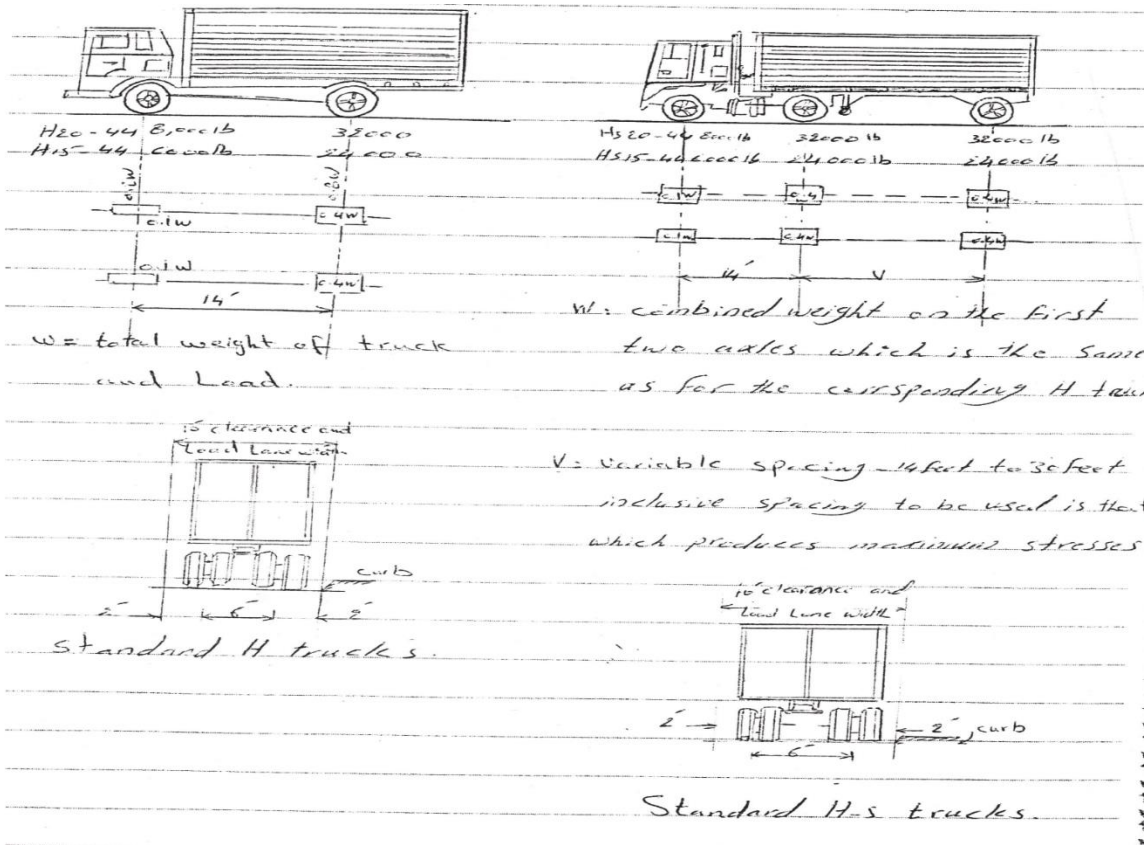 H20-44 8,000 lb 32000
H15-44 6000 lb 24000
0.1W 0.8W
0.1W 0.4W
0.1W 0.4W
14'
W = total weight of truck
and Load.
10' clearance and
Load Lane width
curb
2' 6' 2'
Standard H trucks.
HS20-44 8000 lb 32000 lb 32000 lb
HS15-44 6000 lb 24000 lb 24000 lb
0.1W 0.4W 0.4W
0.1W 0.4W 0.4W
14' V
W: combined weight on the first
two axles which is the same
as for the corrsponding H
V: variable spacing - 14 feet to 30 feet
inclusive spacing to be used is that
which produces maximum stresses
10' clearance and
Load Lane width
2' 2' curb
6'
Standard H-S trucks.